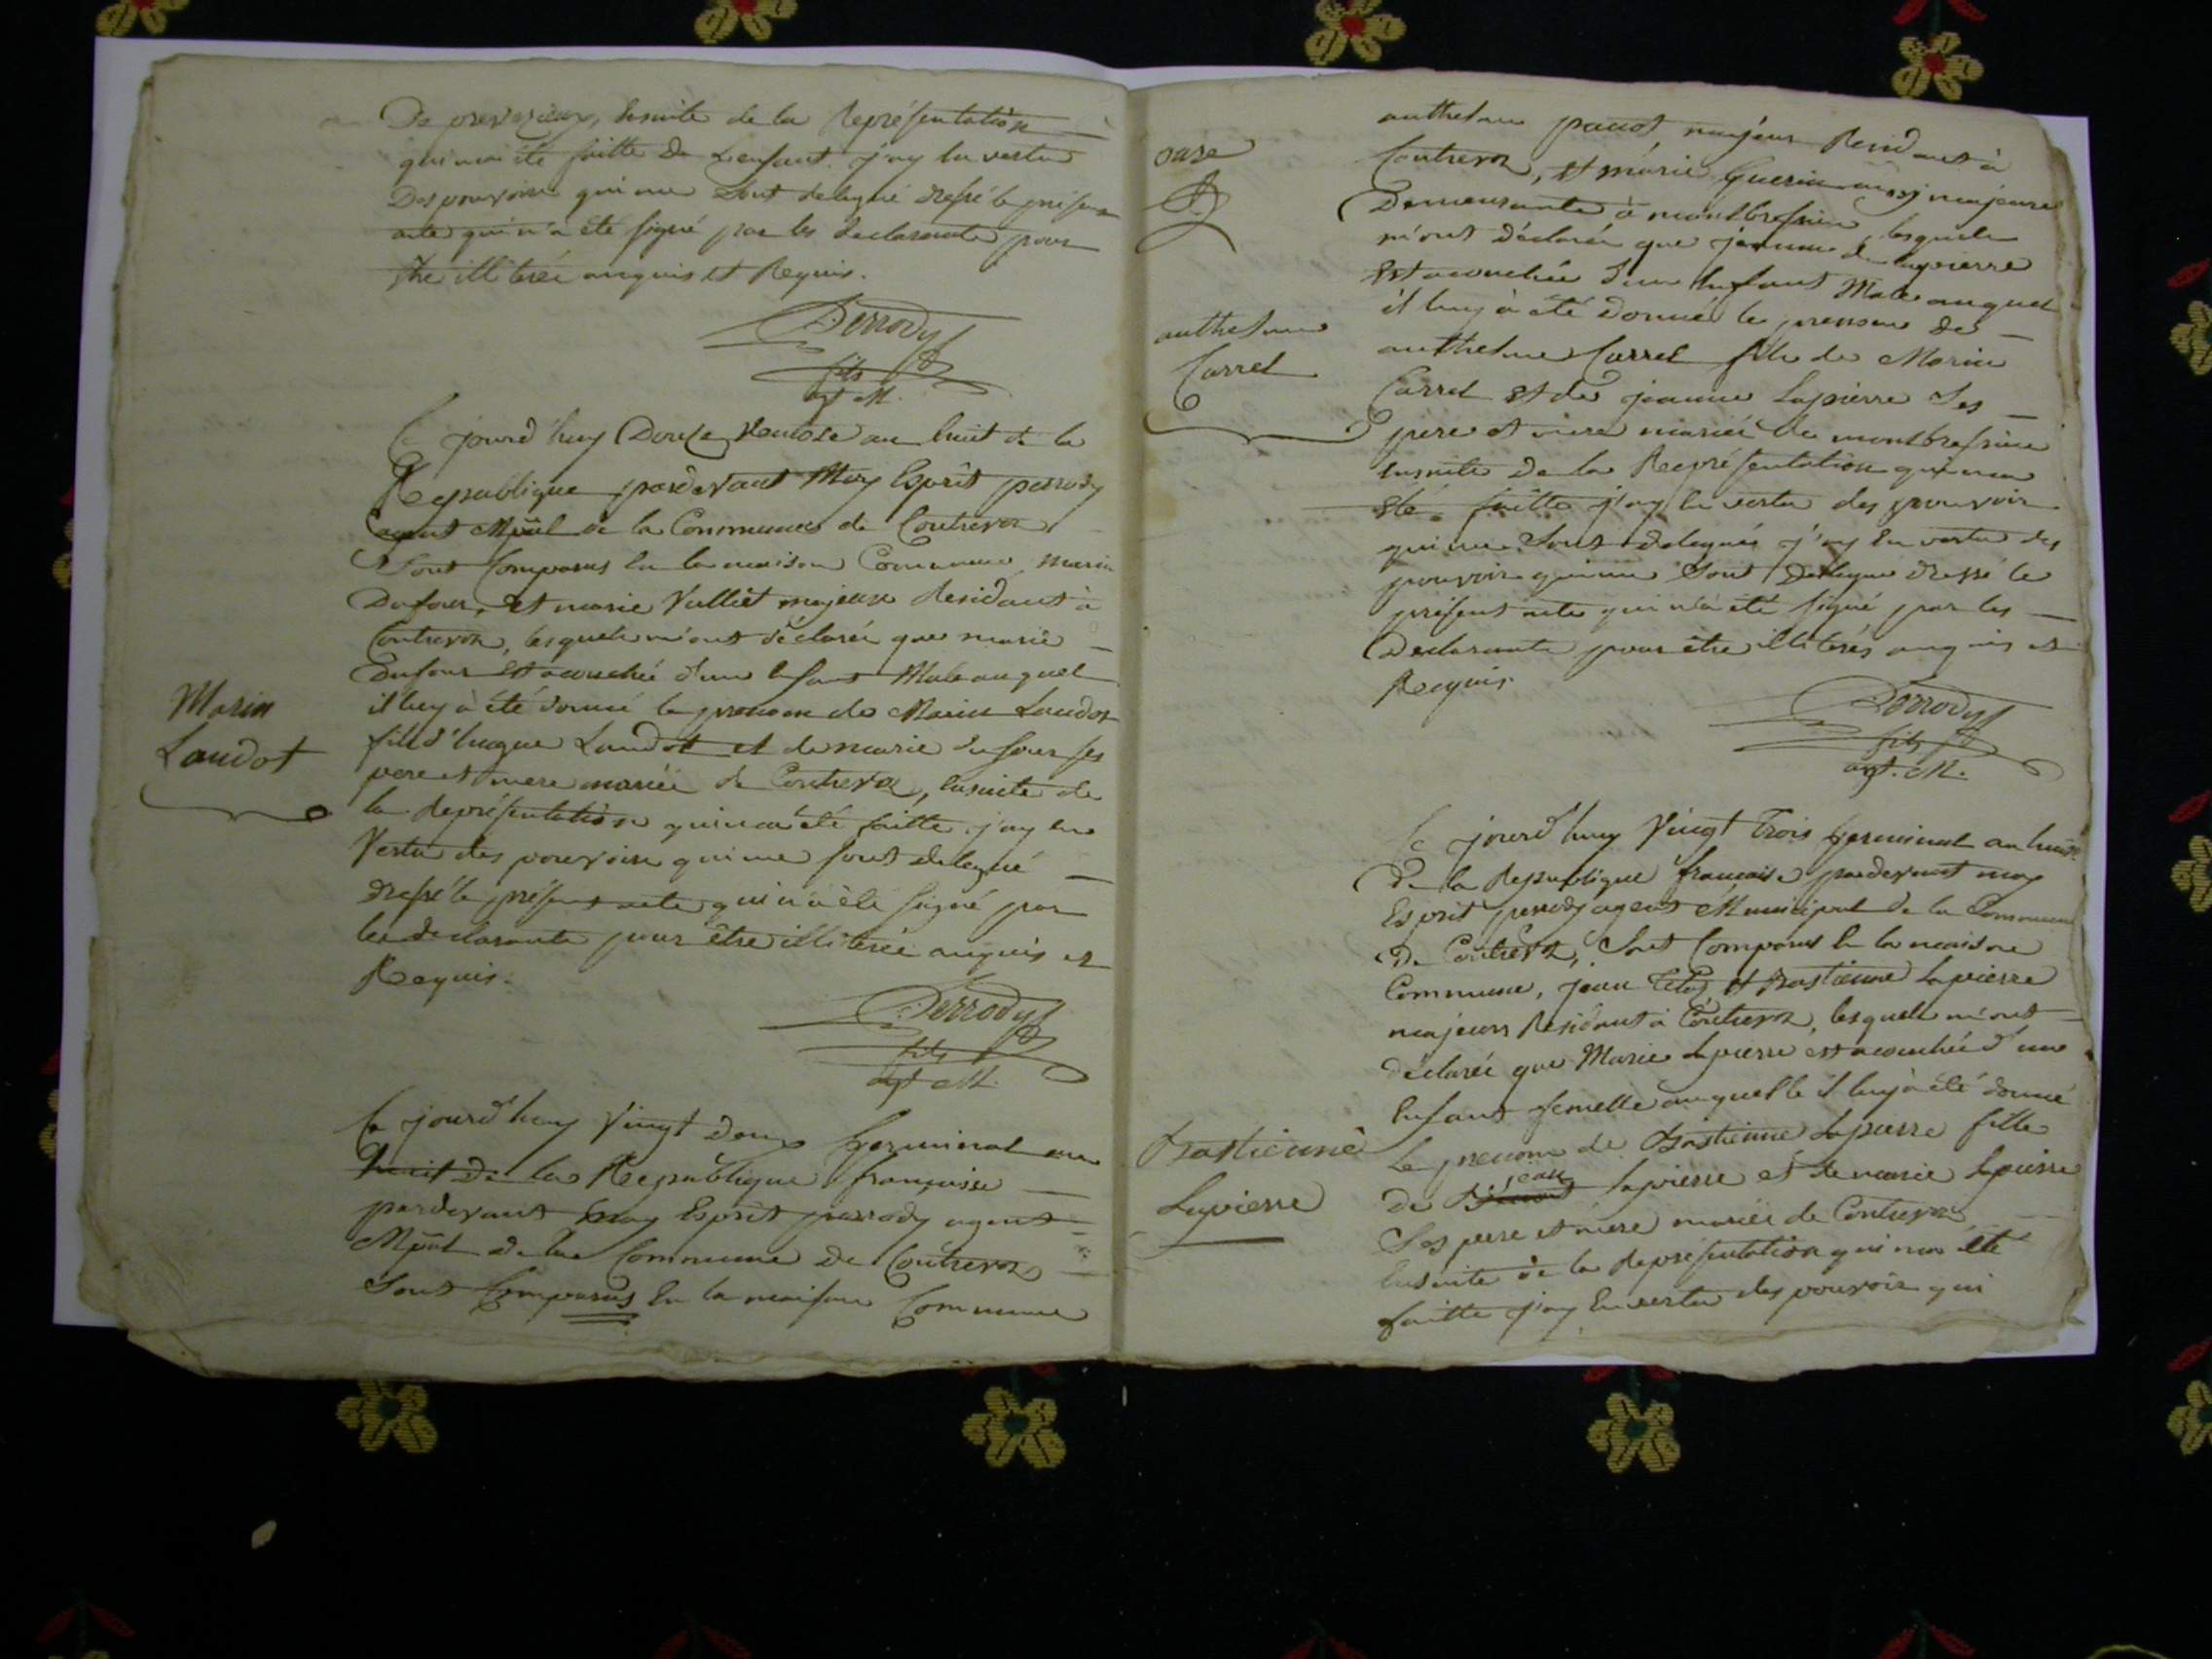 De prevezieux, Ensuite de la Représentation
qui m'a été faitte de L'enfant j'ay En vertu
Des pouvoirs qui me sont delegué dressé le présent
acte qui n'a été signé par les declarants pour
être illiterée enquis et Requis.
Perrody
fils
agt M.
Ce jourd'huy Douze Ventose an huit de la
Republique pardevant Moy Esprit perrody
agent Mpâl de la Commune de Contrevoz
Sont Comparus En la maison Commune, marin
Dufour, et marie Vulliet majeurs Residant à
Contrevoz, lesquels m'ont déclarée que marie
Dufour est acouchée d'un Enfant Male auquel
il luy à été donné le prenom de Marin Laudot
fils d'hugue Laudot et de marie dufour ses
pere et mere mariée de Contrevoz, Ensuite de
la Représentation qui m'a été faitte j'ay En
Vertu des pouvoirs qui me sont delegué
dressé le présent acte qui n'à été signé par
les declarants pour être illiterée enquis et
Requis.
Perrody
fils
agt M.
Marin
Laudot
Ce jourd'huy Vingt deux Germinal an
huit De la Republique française
pardevant moy Esprit perrody agent
Mpâl de la Commune De Contrevoz
Sont Comparus En la maison Commune
anthelme pacot majeur Residant à
Contrevoz, et marie Guerin aussi majeure
Demeurante à montbressieu, lesquels
m'ont déclarée que jeanne Lapierre
Est acouchée d'un Enfant Male auquel
il luy à été donné le prenom de
anthelme Carrel fils de Marin
Carrel et de jeanne Lapierre Ses
pere et mere mariée de montbressieu
ensuite de la Représentation qui m'a
été faitte j'ay En vertu des pouvoir
qui me sont delegués j'ay En vertu des
pouvoir qui me sont delegue dressé le
présent acte qui n'à été signé par les
Declarants pour être illiterés enquis et
Requis.
Perrody
fils
agt. M.
anthelme
Carrel
Ce jourd'huy Vingt Trois Germinal an huit
De la Republique francaise pardevant moy
Esprit perrody agent Municipal de la Commune
De Contrevoz, Sont Comparus En la maison
Commune, jean et Bastienne Lapierre
majeurs Résidant à Contrevoz, lesquels m'ont
déclarée que Marie Lapierre est acouchée d'une
Enfant femelle auquelle il luy à été donné
Le prenom de Bastienne Lapierre fille
De jean Lapierre et de marie Lapierre
Ses pere et mere mariée de Contrevoz
Ensuite de la Représentation qui m'a été
faitte j'ay En vertu des pouvoir qui
Bastienne
Lapierre